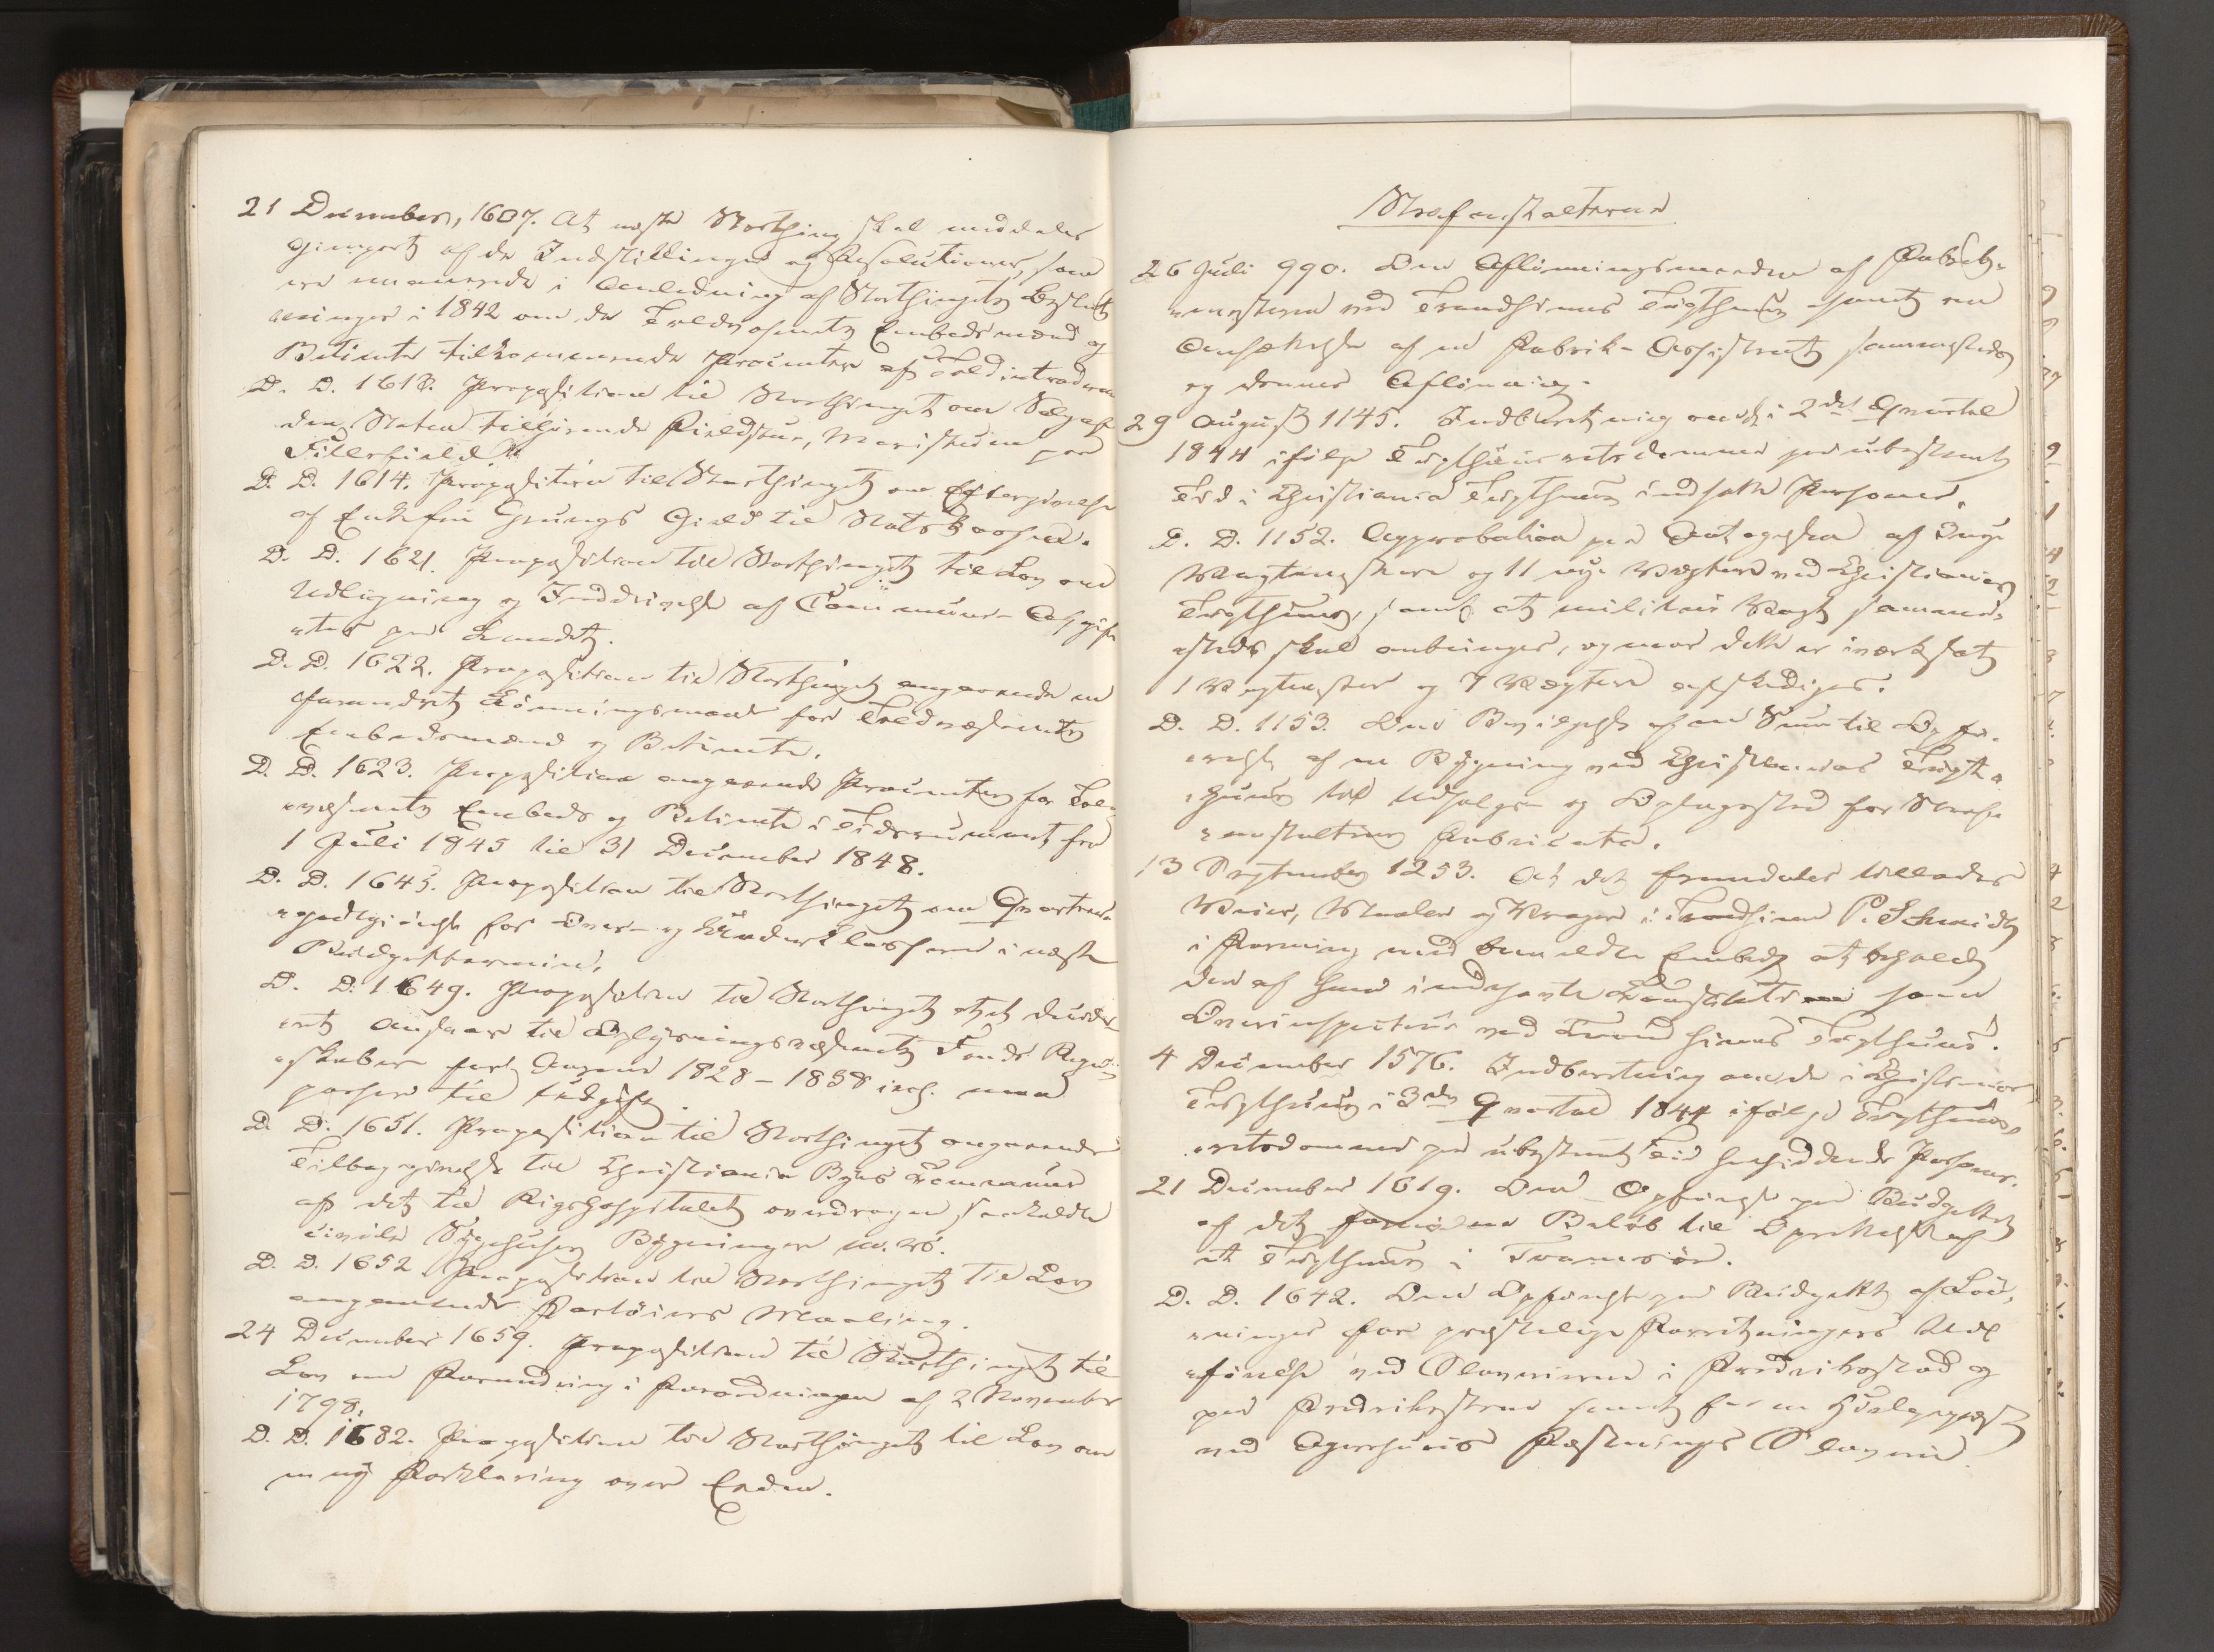 21 December, 1607. At næste Storthing skal meddeles
Gjenpart af de Indstillinger og Resolutioner, som
ere emanerede i Anledning af Storthingets Beslut-
ninger i 1842 om de Toldvæsenets Embedsmænd og
Betiente tilkommende Procenter af Toldintraderne
D. D. 1613. Proposition til Storthinget om Salg af
den Staten tilhørende Fieldstue, Maristuen paa
Fillefield.
D. D. 1614. Proposition til Storthinget om Eftergivelse
af Enkefru Grungs Gield til Statskassen.
D. D. 1621. Proposition til Storthinget til Lov om
Udligning og Inddrivelse af Commune-Afgif-
ter paa Landet.
D. D. 1622. Proposition til Storthinget angaaende en
forandret Lønningsmaade for Toldvæsenets
Embedsmænd og Betiente.
D. D. 1623. Proposition angaaende Procenter for Told-
væsenets Embeds og Betiente i Tidsrummet fra
1 Juli 1845 til 31 December 1848.
D. D. 1645. Proposition til Storthinget om Qvarteer-
godtgiørelse for Over- og Underklasserne i næste
Budgettermin.
D. D. 1649. Proposition til Storthinget at et decider-
et Ansvar til Oplysningsvæsenets Fonds Regn-
skaber for Aarene 1828 - 1838 incl. maa
passere til Udgift.
D. D. 1651. Proposition til Storthinget angaaende
Tilbagegivelse til Christiania Byes Commune
af det til Rigshospitalet overdragne saakaldte
civile Sygehuses Bygninger m. v.
D. D. 1652. Proposition til Storthinget til Lov
angaaende Fartøiers Maaling.
24 December 1659. Proposition til Storthinget til
Lov om Forandring i Forordningen af 2 November
1798.
D. D. 1682. Proposition til Storthinget til Lov om
en ny Forklaring over Eden.
Strafanstalterne
26 Juli 990. Om Aflønningsmaaden af Fabrik-
mesteren ved Trondhiems Tugthuus samt om
Ansættelse af en Fabrik-Assistent sammesteds
og dennes Aflønning.
29 August 1145. Indberetning om de i 2det Qvartal
1844 ifølge Tugthuusretsdomme paa ubestemt
Tid i Christiania Tugthuus indsatte Personer.
D. D. 1152. Approbation paa Antagelsen af
Vagtmestere og 11 nye Vægtere ved Christiania
Tugthuus, samt at militair Vagt samme-
steds skal anbringes, og naar dette er iværksat
1 Vagtmester og 7 Vægtere afskediges.
D. D. 1153. Om Bevilgelse af en Sum til Opfø-
relse af en Bygning ved Christianias Tugt-
huus til Udsalgs- og Oplagssted for Straf-
anstaltens Fabricata.
13 September 1253. At det fremdeles tillades
Veier, Maaler og Vrager i Trondhiem P. Schmidt
i Forening med bemeldte Embede at beholde
den af ham indehavte Constitution som
Overinspecteur ved Trondhiems Tugthuus.
4 December 1576. Indberetning om de i Christiania
Tugthuus i 3die Qvartal 1844 ifølge Tugthuus-
retsdomme paa ubestemt Tid hensiddende Personer.
21 December 1619. Om Opførelse paa Budgettet
af det fornødne Beløb til Oprettelse af
et Tugthuus i Tromsøe.
D. D. 1642. Om Opførelse paa Budgettet af Løn-
ninger for præstelige Forretningers Ud-
førelse ved Slaverierne i Fredrikstad og
paa Fredriksteen samt for en Hielpepræst
ved Agershuus Fæstnings Slaverie.